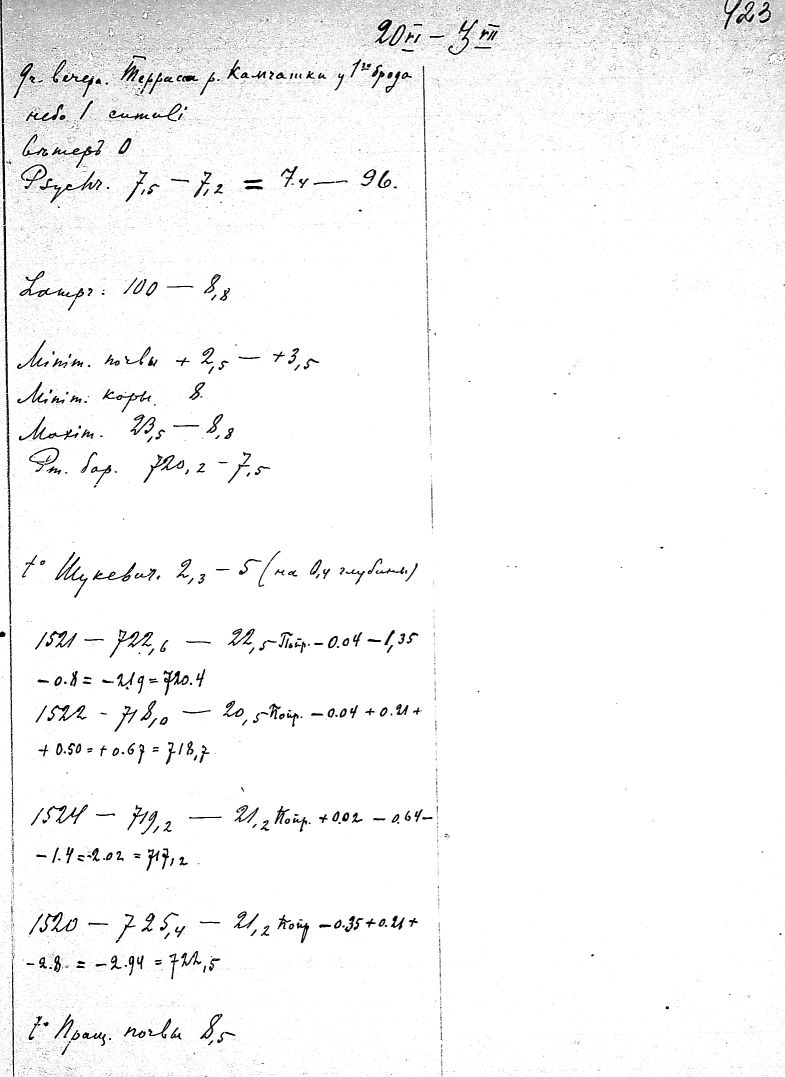 423
20 VI – 3 VII
9 ч. вечера. Терраса р. Камчатки у 1го брода
небо 1 cumuli
вѣтеръ 0
Psychr. 7,5 — 7,2 = 7.4 — 96.
100 — 8,8
Minim. почвы + 2,5 — +3,5
Minim. коры. 8.
Maxim. 23,5 — 8,8
бар. 720,2 – 7,5
t° Шукевич. 2,3 – 5 (на 0,4 глубины)
1521 — 722,6 — 22,5 – 0.04 – 1,35
– 0.8 = – 2.19 = 720.4
1522 - 718,0 — 20,5 – 0.04 + 0.21 +
+ 0.50 = + 0.67 = 718,7
1524 — 719,2 — 21,2 + 0.02 – 0.64 –
– 1.4 = - 2.02 = 717,2
1520 — 725,4 — 21,2 – 0.35 + 0.21 +
– 2.8 = – 2.94 = 722,5
t° Пращ. почвы 8,5